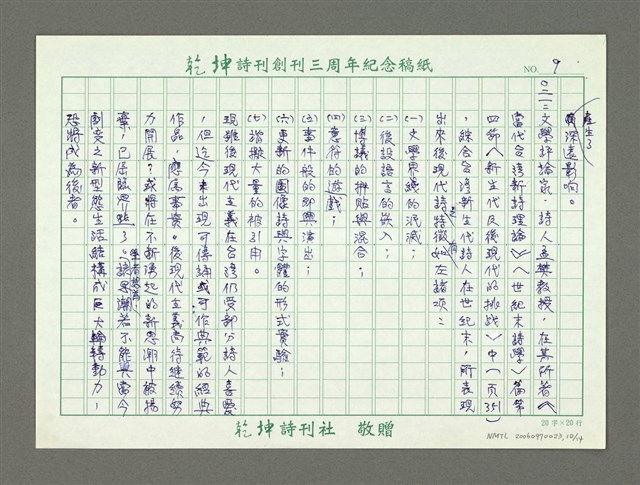 乾坤詩刊創刊三周年紀念稿紙
NO. 9.
產生了
深遠影響。
○二：文學評論家、詩人孟樊教授，在其所著《
當代台灣新詩理論》〈世紀末詩學〉篇第
四節〈新生代及後現代的挑戰〉中（頁351）
，綜合台灣新生代詩人在世紀末，所表現
出來後現代詩特徵，是有如左諸項：
(一)文學界線的泯滅；
(二)後設語言的嵌入；
(三)博議的拼貼與混合；
(四)意符的遊戲；
(五)事件般的即興演出；
(六)更新的圖像詩與字體的形式實驗；
(七)諧擬大量的被引用。
現雖後現代主義在台灣仍受部分詩人喜愛
，但迄今未出現可傳誦或可作典範的經典
作品，應屬事實。後現代主義尚待繼續努
力開展？或將在不斷湧起的新思潮中被揚
棄，已屆臨界點了（筆者認為，該思潮若不能與當今
劇變之新型態生活結構成巨大輪轉動力—
恐將成為後者。
20字×20行
乾坤詩刊社 敬贈
NMTL 20060970023,10/14